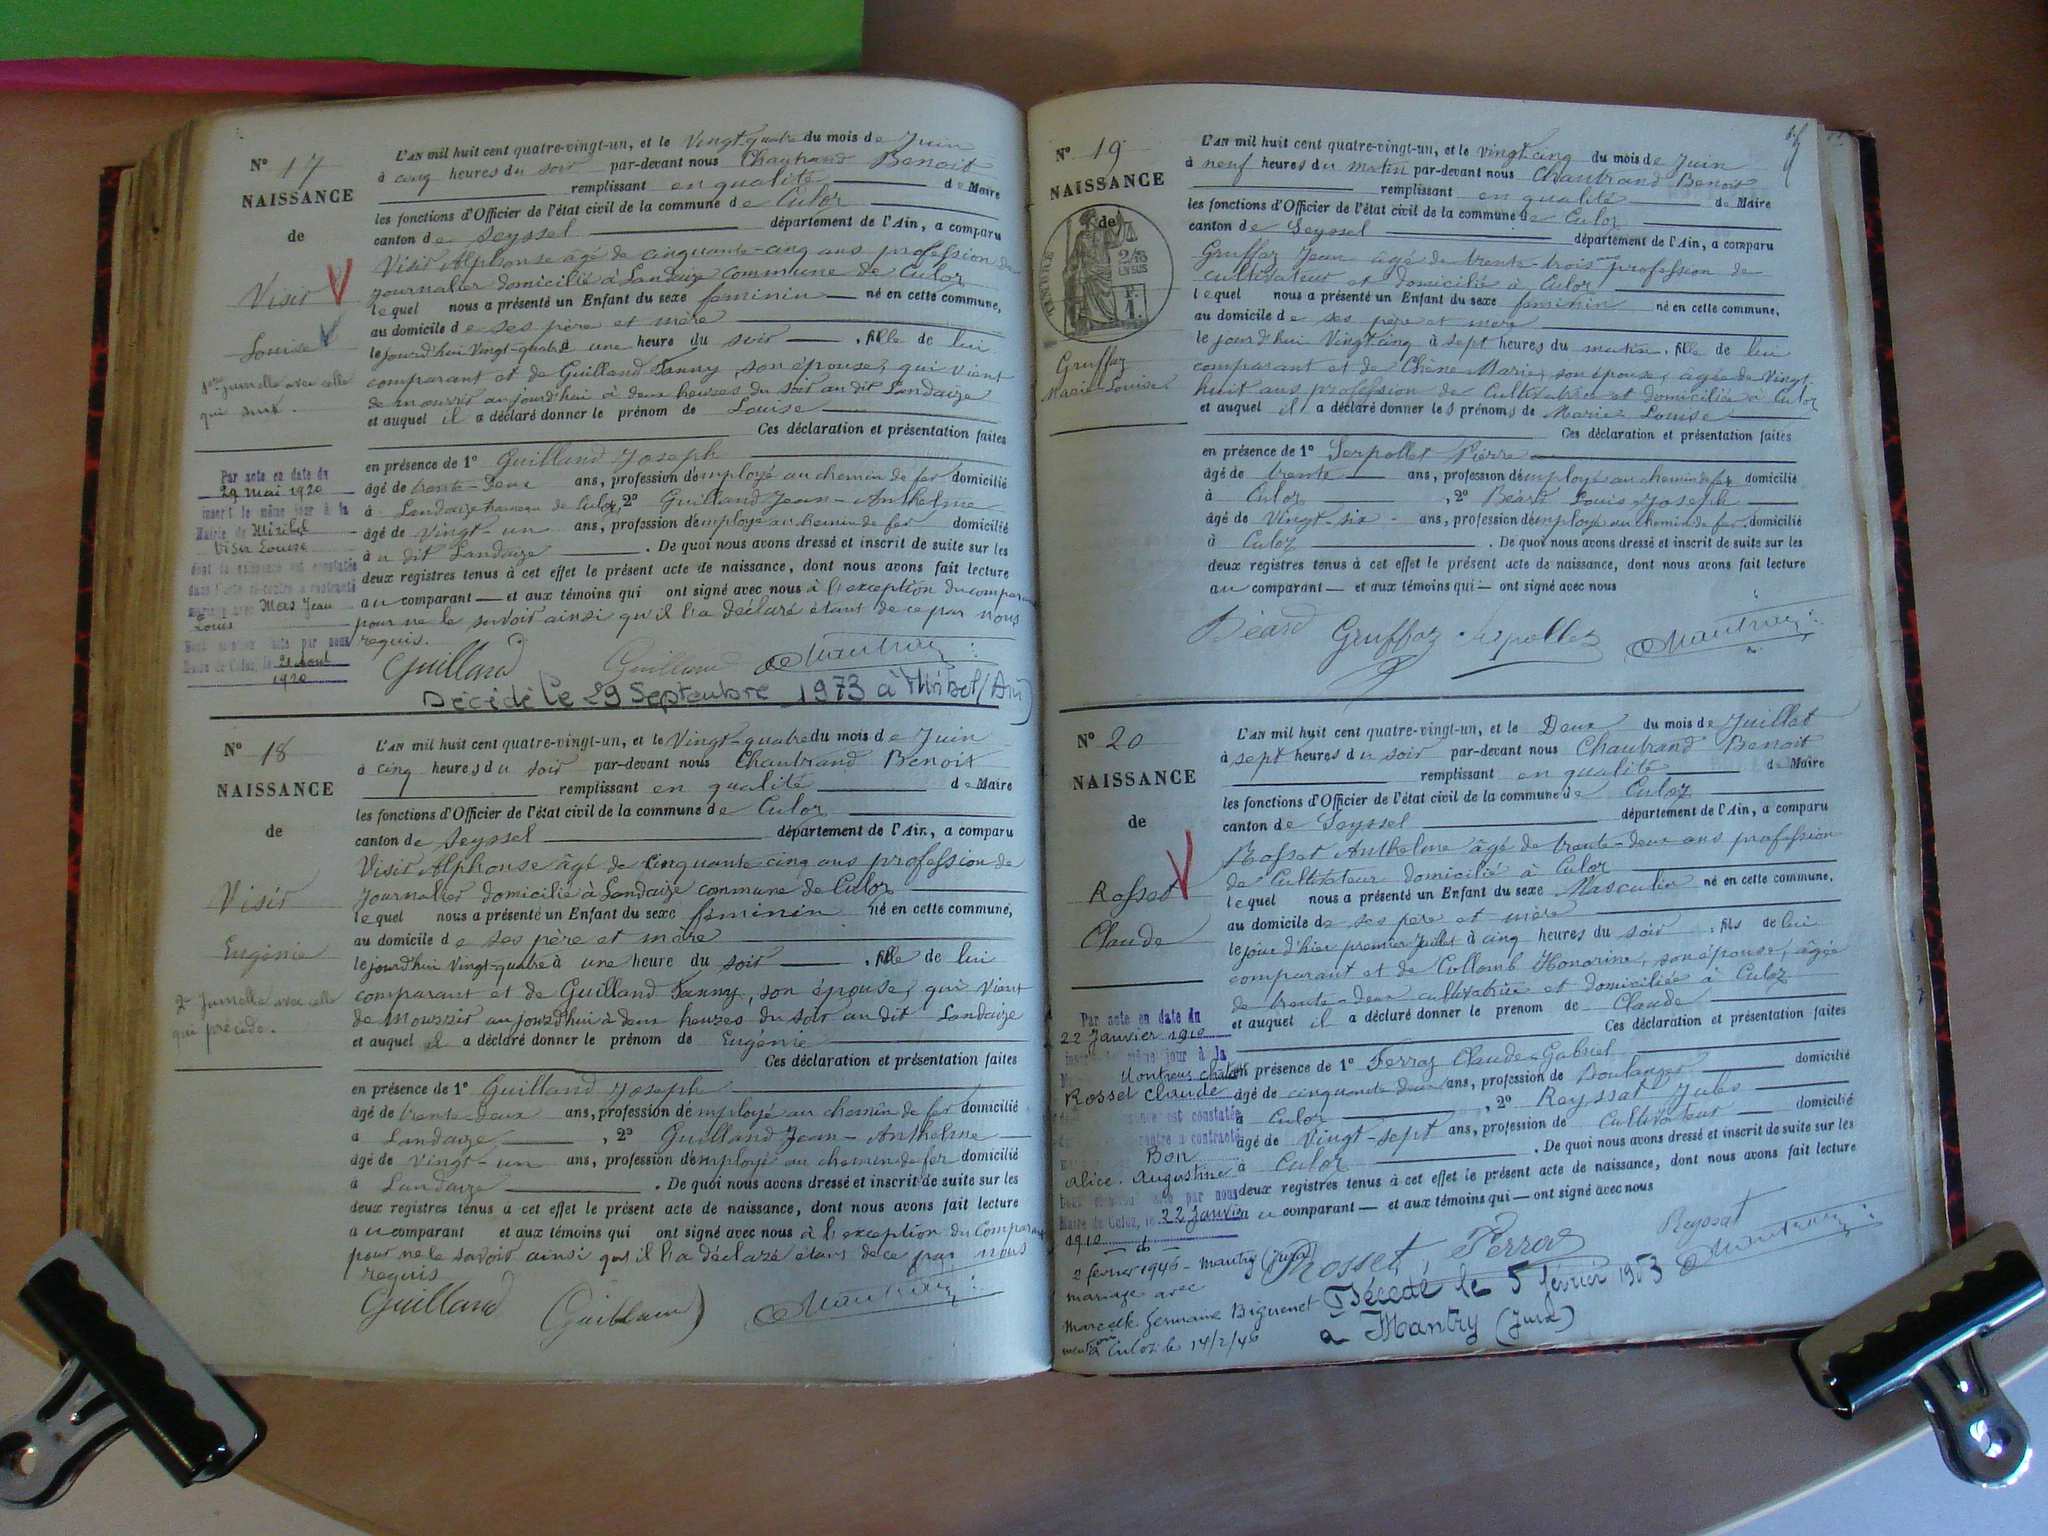 N° 17
NAISSANCE
de
Visir
Louise
1ère jumelle avec celle
qui suit.
Par acte en date du
29 Mai 1920
inscrit le même jour à la
Mairie de Miribel
Visir Louise
dont la naissance est constatée
dans l'acte ci-contre a contracté
mariage avec Mers Jean
Louis
Dont mention faite par nous
Maire de Culoz, le 21 Aout
1920
L'AN mil huit cent quatre-vingt-un, et le Vingt-quatre du mois de Juin
à cinq heures du soir par-devant nous Chautrand Benoit
remplissant en qualité de Maire
les fonctions d'Officier de l'état civil de la commune de Culoz
canton de Seyssel département de l'Ain, a comparu
Visir Alphonse âgé de cinquante-cinq ans profession de
journalier domicilié à Landaize commune de Culoz
lequel nous a présenté un Enfant du sexe feminin né en cette commune,
au domicile de ses père et mère
le jourd'hui Vingt-quatre à une heure du soir, fille de lui
comparant et de Guilland Fanny, son épouse, qui vient
de mourir aujourd'hui à deux heures du soir au dit Landaize
et auquel il a déclaré donner le prénom de Louise
Ces déclaration et présentation faites
en présence de 1° Guilland Joseph
âgé de trente-deux ans, profession d'employé au chemin de fer domicilié
à Landaize hameau de Culoz, 2° Guilland Jean-Anthelme
âgé de Vingt-un ans, profession d'employé au chemin de fer domicilié
à u dit Landaize. De quoi nous avons dressé et inscrit de suite sur les
deux registres tenus à cet effet le présent acte de naissance, dont nous avons fait lecture
au comparant — et aux témoins qui ont signé avec nous à l'exception du comparant
pour ne le savoir ainsi qu'il l'a déclaré étant de ce par nous
requis.
Guilland Guilland Chautrand
Décédé le 29 Septembre 1973 à Miribel (Ain)
N° 18
NAISSANCE
de
Visir
Eugénie
2e Jumelle avec celle
qui précède.
L'AN mil huit cent quatre-vingt-un, et le Vingt-quatre du mois de Juin
à cinq heures du soir par-devant nous Chautrand Benoit
remplissant en qualité de Maire
les fonctions d'Officier de l'état civil de la commune de Culoz
canton de Seyssel département de l'Ain, a comparu
Visir Alphonse âgé de cinquante cinq ans profession de
journalier domicilié à Landaize commune de Culoz
lequel nous a présenté un Enfant du sexe feminin né en cette commune,
au domicile de ses père et mère
le jourd'hui Vingt-quatre à une heure du soir, fille de lui
comparant et de Guilland Fanny, son épouse, qui vient
de mourir aujourd'hui à deux heures du soir au dit Landaize
et auquel il a déclaré donner le prénom de Eugénie
Ces déclaration et présentation faites
en présence de 1° Guilland Joseph
âgé de trente-deux ans, profession d'employé au chemin de fer domicilié
à Landaize, 2° Guilland Jean-Anthelme
âgé de Vingt-un ans, profession d'employé au chemin de fer domicilié
à Landaize. De quoi nous avons dressé et inscrit de suite sur les
deux registres tenus à cet effet le présent acte de naissance, dont nous avons fait lecture
au comparant et aux témoins qui ont signé avec nous à l'exception du comparant
pour ne le savoir ainsi qu'il l'a déclaré étant de ce par nous
requis
Guilland Guilland Chautrand
N° 19
NAISSANCE
de
TIMBRE
2/10
EN SUS
Gruffaz
Marie-Louise
L'AN mil huit cent quatre-vingt-un, et le vingt cinq du mois de Juin
à neuf heures du matin par-devant nous Chautrand Benoit
remplissant en qualité de Maire
les fonctions d'Officier de l'état civil de la commune de Culoz
canton de Seyssel département de l'Ain, a comparu
Gruffaz Jean âgé de trente-trois ans profession de
cultivateur et domicilié à Culoz
lequel nous a présenté un Enfant du sexe feminin né en cette commune,
au domicile de ses père et mère
le jourd'hui Vingt cinq à sept heures du matin, fille de lui
comparant et de Chêne Marie, son épouse, âgée de Vingt
huit ans profession de Cultivatrice et domiciliée à Culoz
et auquel il a déclaré donner les prénoms de Marie Louise
Ces déclaration et présentation faites
en présence de 1° Serpollet Pierre
âgé de trente ans, profession d'employé au chemin de fer domicilié
à Culoz, 2° Béard Louis Joseph
âgé de Vingt-six ans, profession d'employé au chemin de fer domicilié
à Culoz. De quoi nous avons dressé et inscrit de suite sur les
deux registres tenus à cet effet le présent acte de naissance, dont nous avons fait lecture
au comparant — et aux témoins qui — ont signé avec nous
Béard Gruffaz Serpollet Chautrand
N° 20
NAISSANCE
de
Rosset
Claude
Par acte en date du
22 Janvier 1910
inscrit le même jour à la
Rosset Claude
naissance est constatée
contre a contracté
Bon
Alice Augustine
par nous
Maire de Culoz, le 22 Janvier
1910
2 février 1946 - Mantry (Jura)
mariage avec
Marcelle Germaine Biguenet
Culoz le 14/2/46
L'AN mil huit cent quatre-vingt-un, et le Deux du mois de Juillet
à sept heures du soir par-devant nous Chautrand Benoit
remplissant en qualité de Maire
les fonctions d'Officier de l'état civil de la commune de Culoz
canton de Seyssel département de l'Ain, a comparu
Rosset Anthelme âgé de trente-deux ans profession
de Cultivateur domicilié à Culoz
lequel nous a présenté un Enfant du sexe Masculin né en cette commune,
au domicile de ses père et mère
le jour d'hier premier Juillet à cinq heures du soir, fils de lui
comparant et de Collomb Honorine, son épouse, âgée
de trente-deux cultivatrice et domiciliée à Culoz
et auquel il a déclaré donner le prénom de Claude
Ces déclaration et présentation faites
en présence de 1° Ferraz Claude-Gabriel
âgé de cinquante deux ans, profession de Boulanger domicilié
à Culoz, 2° Reyssat Jules
âgé de Vingt-sept ans, profession de Cultivateur domicilié
à Culoz. De quoi nous avons dressé et inscrit de suite sur les
deux registres tenus à cet effet le présent acte de naissance, dont nous avons fait lecture
au comparant — et aux témoins qui — ont signé avec nous
Rosset Ferraz Reyssat Chautrand
Décédé le 5 février 1953
à Mantry (Jura)